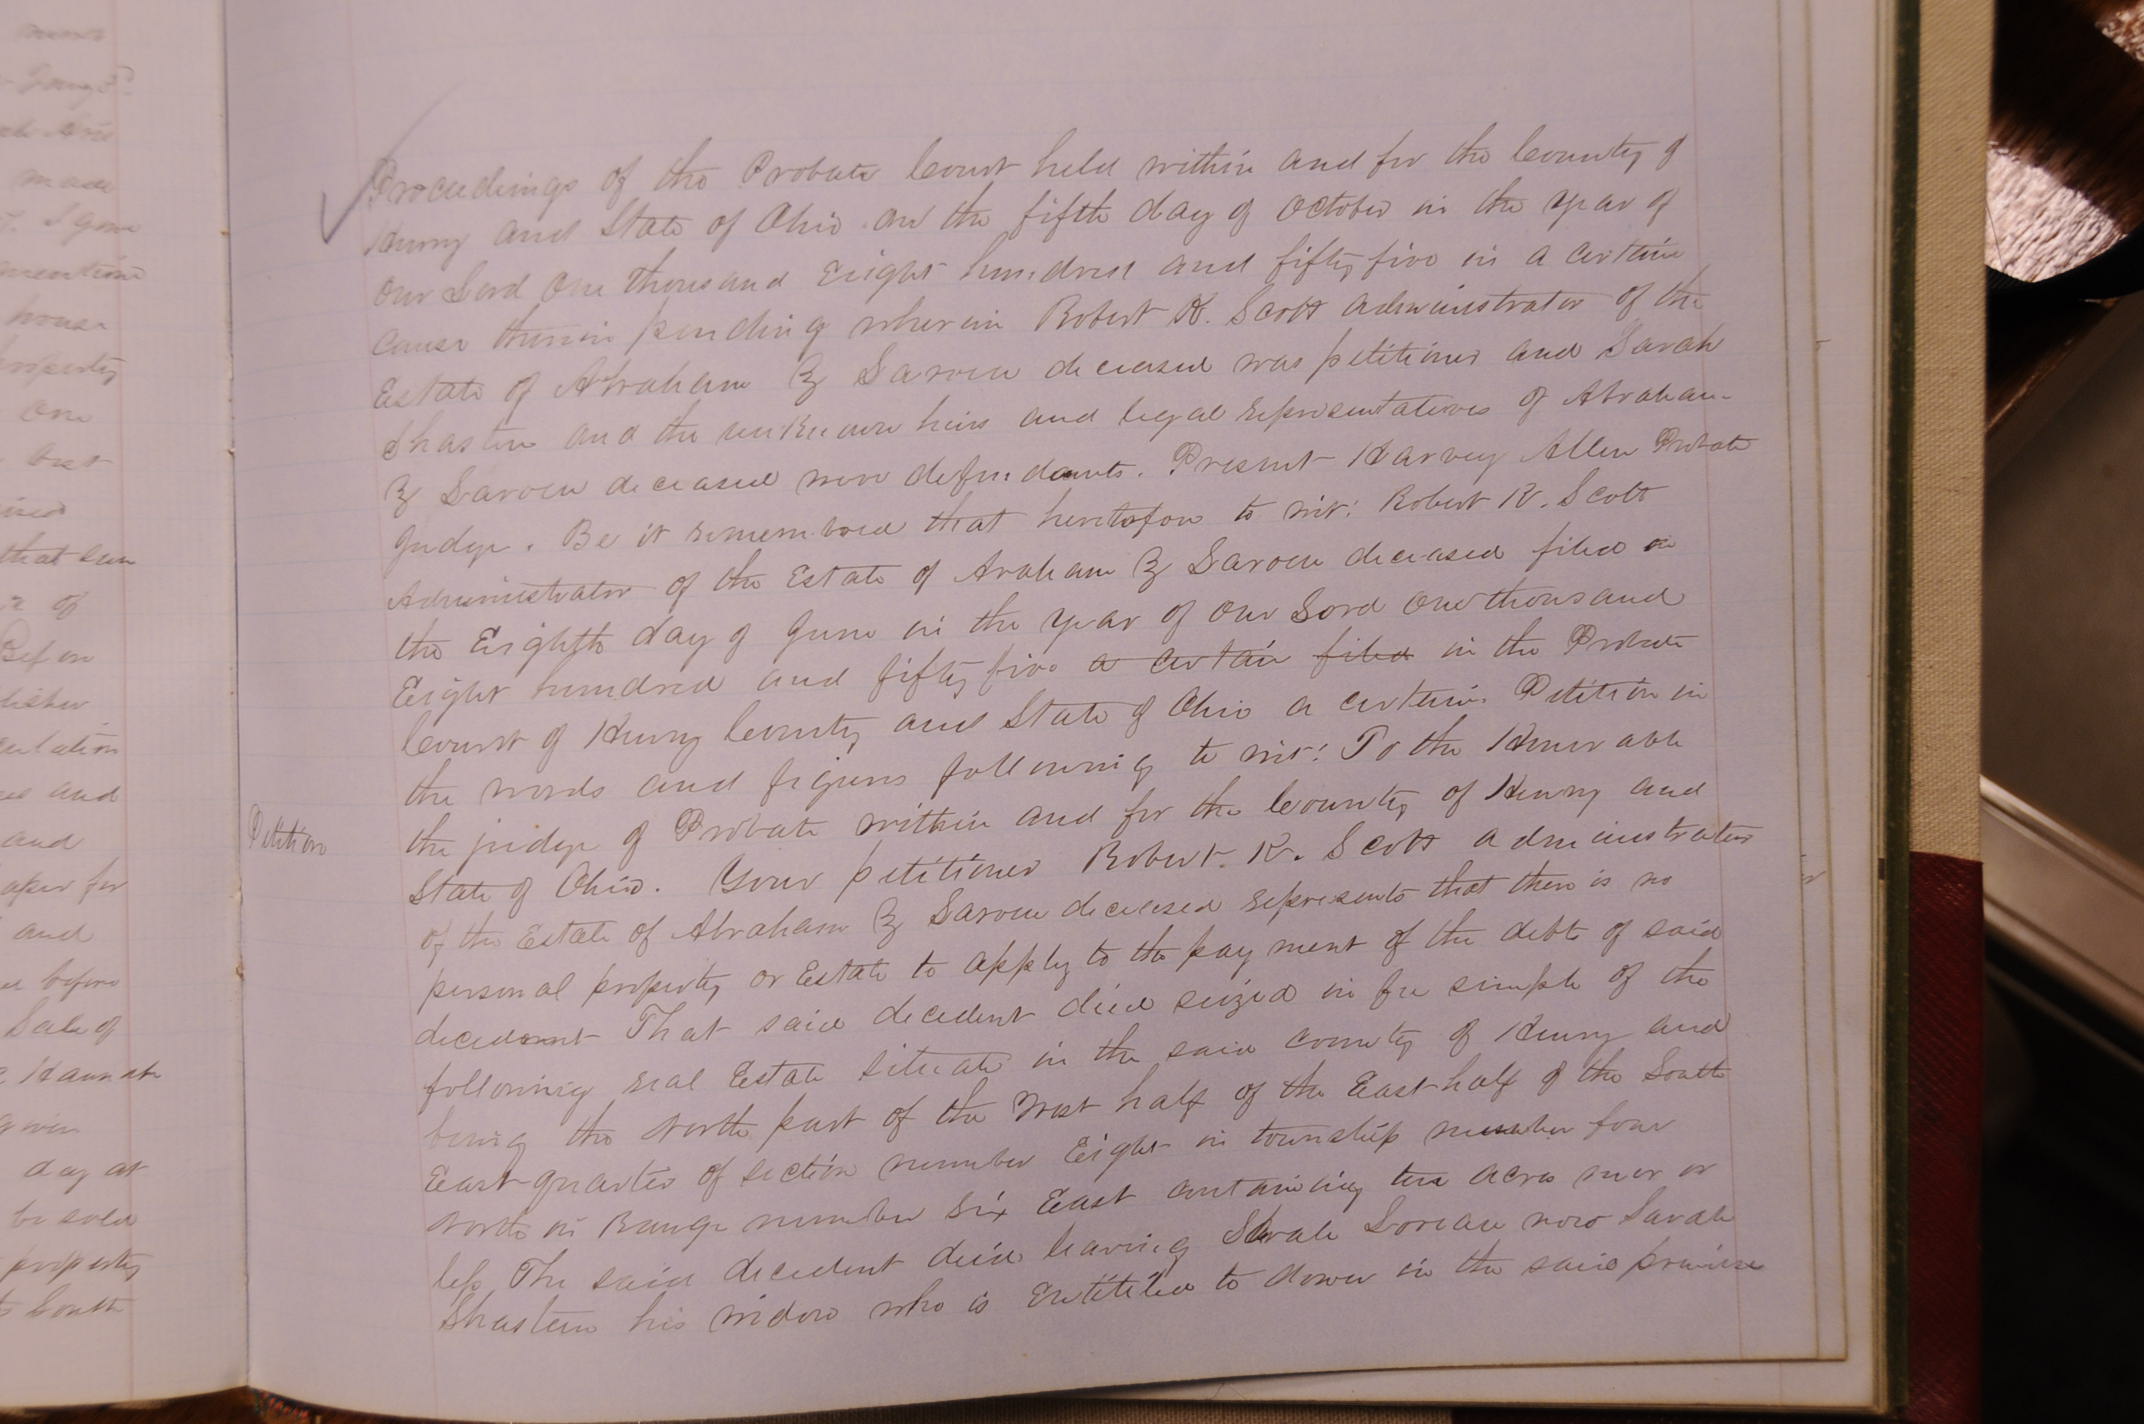 Proceedings of the Probate Court held within and for the County of
Henry and State of Ohio on the fifth day of October in the year of
our Lord One thousand Eight hundred and fifty five in a certain
cause therein pending wherein Robert K. Scott administrator of the
Estate of Abraham Z Laroeu deceased was petitioner and Sarah
Shasteen and the unknown heirs and legal representatives of Abraham
Z Laroeu deceased were defendants. Present Harvey Allen Probate
Judge. Be it remembered that heretofore to wit: Robert K. Scott
Administrator of the Estate of Araham Z Laroeu deceased filed on
the Eighth day of June in the year of Our Lord One thousand
Eight hundred and fifty five a certain filed in the Probate
Court of Henry County and State of Ohio a certain Petition in
the words and figures following to wit: To the Honorable
Petition
the judge of Probate within and for the County of Henry and
State of Ohio. Your petitioner Robert. K. Scott administrator
of the Estate of Abraham Z Laroeu deceased represents that there is no
personal property or Estate to apply to the payment of the debts of said
decedent That said decedent died seized in fee simple of the
following real Estate situate in the said county of Henry and
being the North part of the West half of the East half of the South
East quarter of section number Eight in township number four
North in Range number Six East containing ten acres more or
less The said decedent died leaving Sarah Loreau now Sarah
Shasteen his widow who is Entitled to dower in the said premises
and
made
house
property
One
best
that
of
and
and
and
before
Sale of
Hannah
given
day at
be sold
property
South